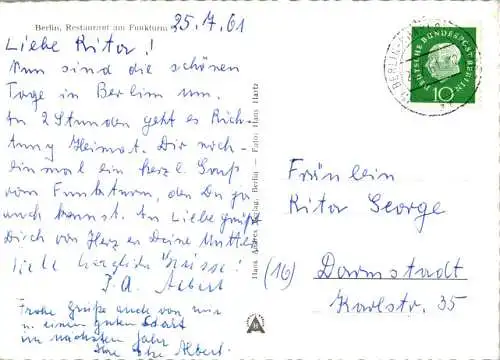 Berlin, Restaurant am Funkturm
25.7.61
Liebe Rita!
Nun sind die schönen
Tage in Berlin um.
In 2 Stunden geht es Rich-
tung Heimat. Dir noch-
einmal ein herzl. Gruß
vom Funkturm, den Du ja
auch kennst. In Liebe grüßt
Dich von Herzen Deine Mutter
Viele herzliche Grüsse!
P.A. Albert
Frohe Grüße auch von mir
u. einen guten Start
im nächsten Jahr
Albert.
Hans Andres Verlag, Berlin — Foto: Hans Hartz
DEUTSCHE BUNDESPOST BERLIN
10
BERLIN
Fräulein
Rita George
(16) Darmstadt
Karlstr. 35